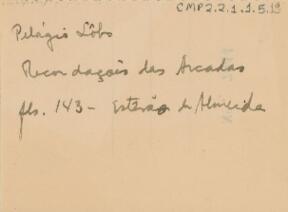 CMP2.2.1.1.5.13
Pelágio Lôbo
Recordações das Arcadas
fls. 143 - Estevão de Almeida